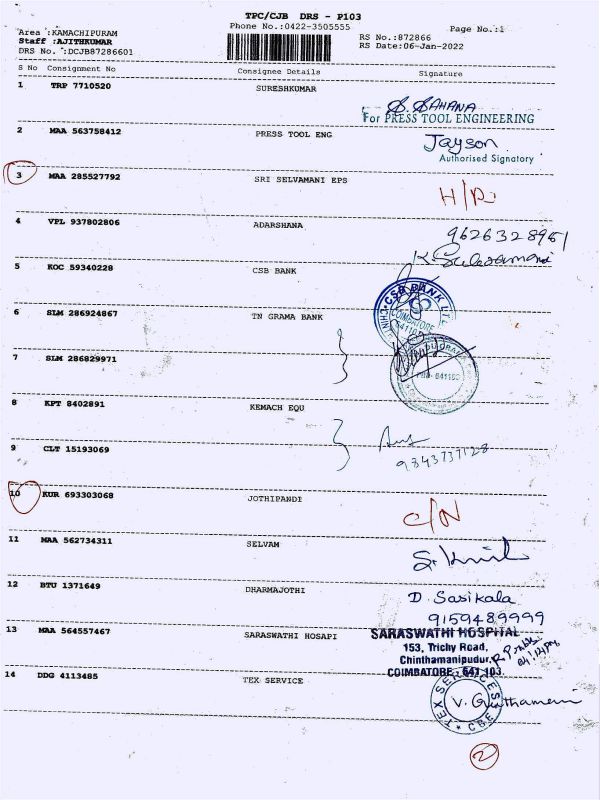 TPC/CJB DRS - P103
Phone No.:0422-3505555
Page No.:1
Area :KAMACHIPURAM
Staff :AJITHKUMAR
DRS No. :DCJB87286601
RS No.:872866
RS Date:06-Jan-2022
S No Consignment No Consignee Details Signature
1 TRP 7710520 SURESHKUMAR
S. SAHANA
For PRESS TOOL ENGINEERING
2 MAA 563758412 PRESS TOOL ENG
Jayson
Authorised Signatory
3 MAA 285527792 SRI SELVAMANI EPS
4 VPL 937802806 ADARSHANA
9626328961
5 KOC 59340228 CSB BANK
CSB BANK LTD
COIMBATORE
6 SLM 286924867 TN GRAMA BANK
7 SLM 286829971
8 KPT 8402891 KEMACH EQU
9 CLT 15193069
9843737128
10 KUR 693303068 JOTHIPANDI
C/N
11 MAA 562734311 SELVAM
12 BTU 1371649 DHARMAJOTHI
D. Sasikala
9159489999
13 MAA 564557467 SARASWATHI HOSAPI
SARASWATHI HOSPITAL
153, Trichy Road,
Chinthamanipudur,
COIMBATORE - 641 103
14 DDG 4113485 TEX SERVICE
TEX SERVICES
CBE
2